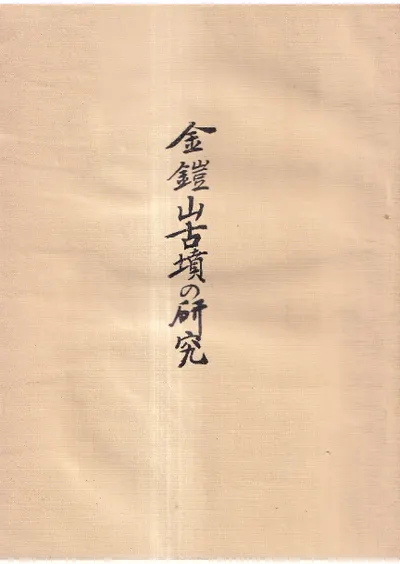 金鎧山古墳の研究